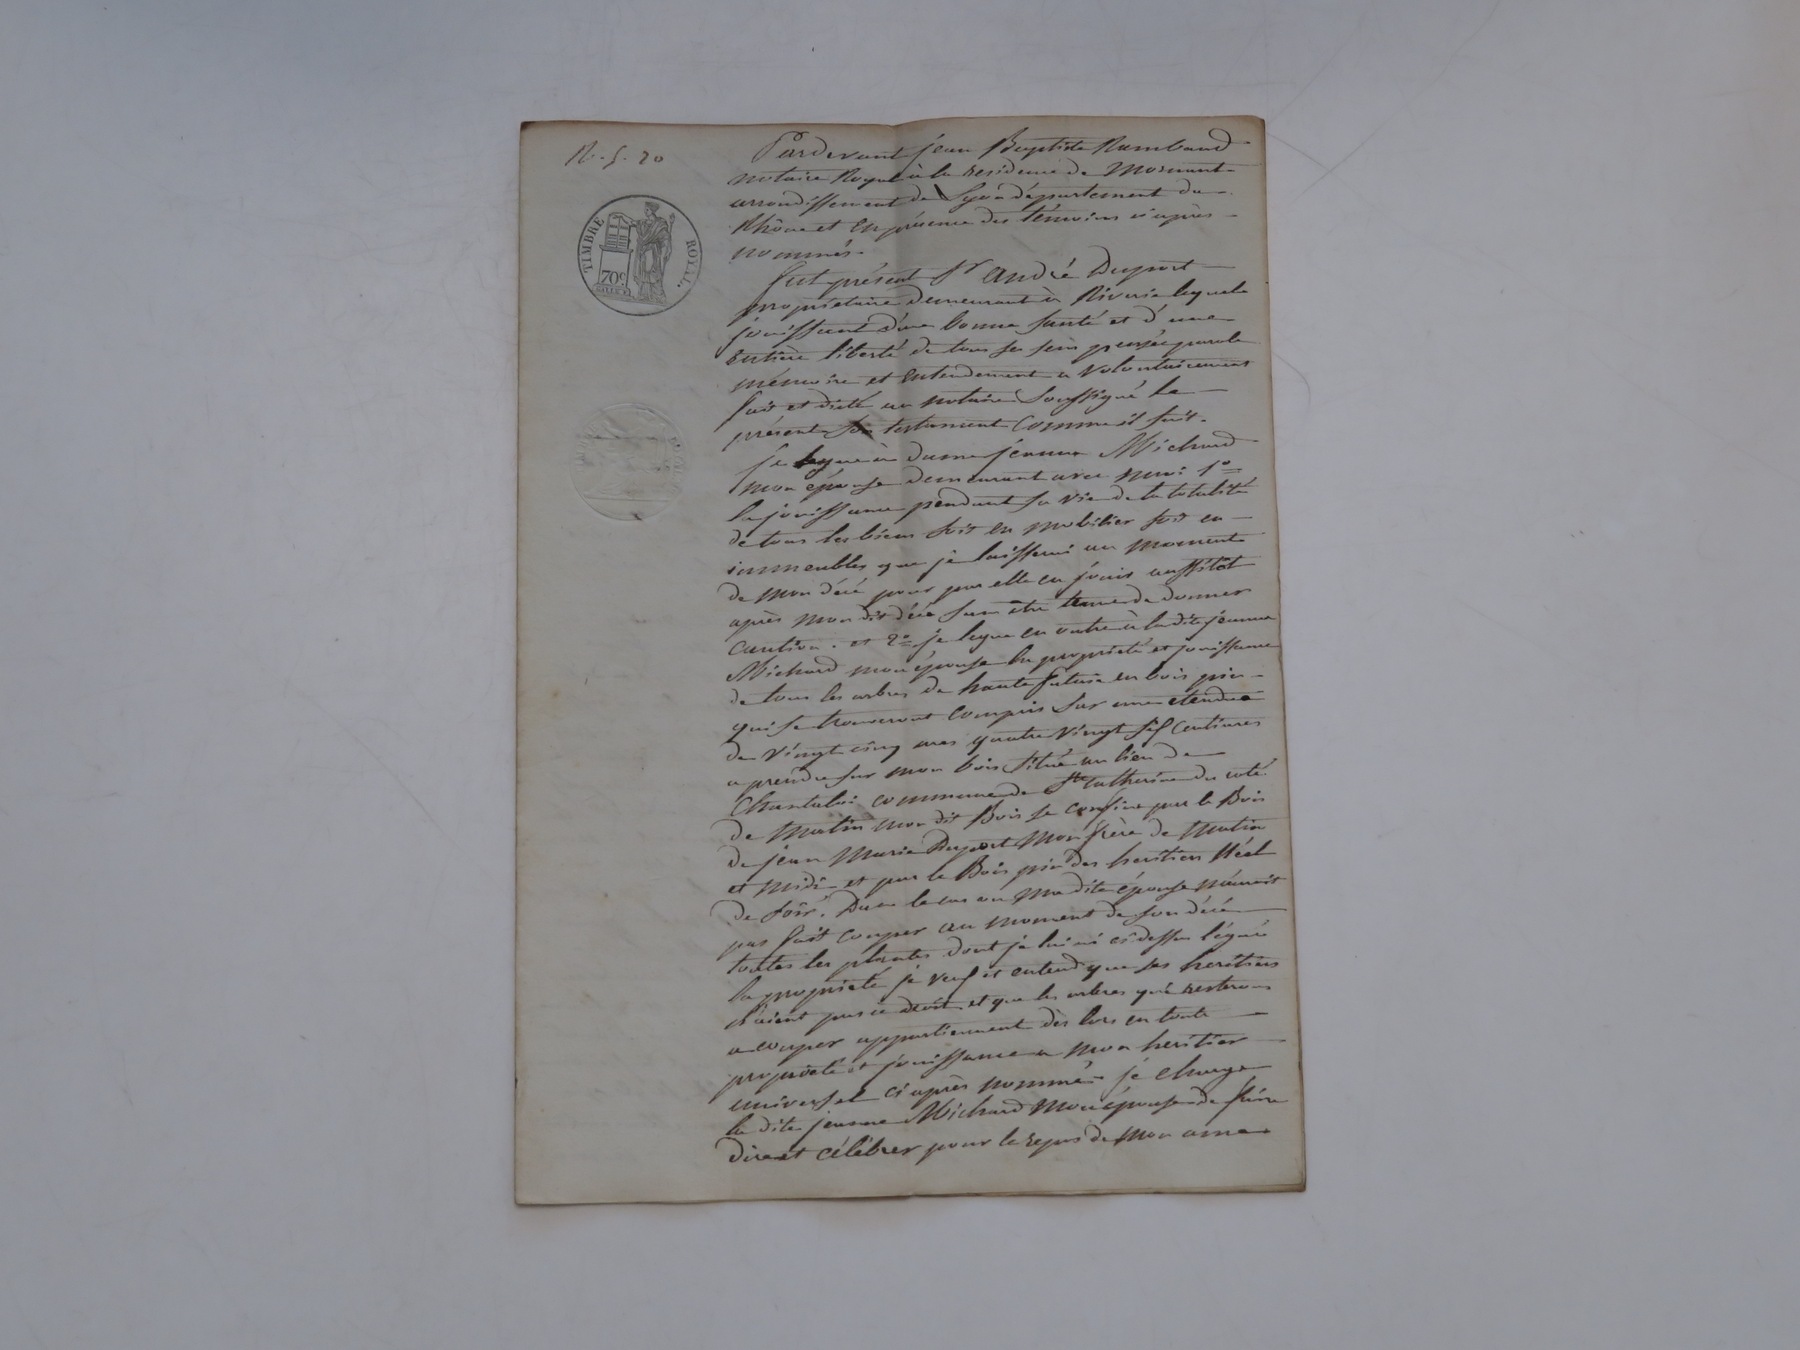 R. f. 20
TIMBRE ROYAL
70c
Pardevant jean Baptiste Rambaud
notaire Royal à la residence de Mornant
arrondissement de Lyon département du
Rhône et en présence des témoins ci après
nommés.
fut présent Sr André Duport
propriétaire demeurant à Riverie lequel
jouissant d'une bonne santé et d'une
entière liberté de tous ses sens pensée parole
mémoire et entendement a volontairement
fait et dicté au notaire soussigné le
présent son testament comme il suit.
je legue à dame jeanne Michard
mon épouse demeurant avec moi 1o
la jouissance pendant sa vie de la totalité
de tous les biens soit en mobilier soit en
immeubles que je laisserai au moment
de mon décé pour par elle en jouir aussitôt
après mon dit décé sans être tenue de donner
caution. et 2o je legue en outre à la dite jeanne
Michard mon épouse la propriété et jouissance
de tous les arbres de haute futaie en bois pin
qui se trouveront compris sur une etendue
de vingt cinq ares quatre vingt six centiares
a prendre sur mon bois situé au lieu de
commune de Ste Catherine du coté
de matin mon dit Bois se confine par le Bois
de jean Marie Duport mon frère de matin
et midi et par le Bois pin des heritiers
de soir. Dans le cas ou ma dite épouse n'auroit
pas fait couper au moment de son décé
toutes les plantes dont je lui ai ci dessus légué
la propriété je veux et entend que ses heritiers
n'aient pas ce droit et que les arbres qui resteront
a couper appartiennent dès lors en toute
propriété et jouissance a mon heritier
universel ci après nommé je charge
la dite jeanne Michard mon épouse de faire
dire et célébrer pour le repos de mon ame